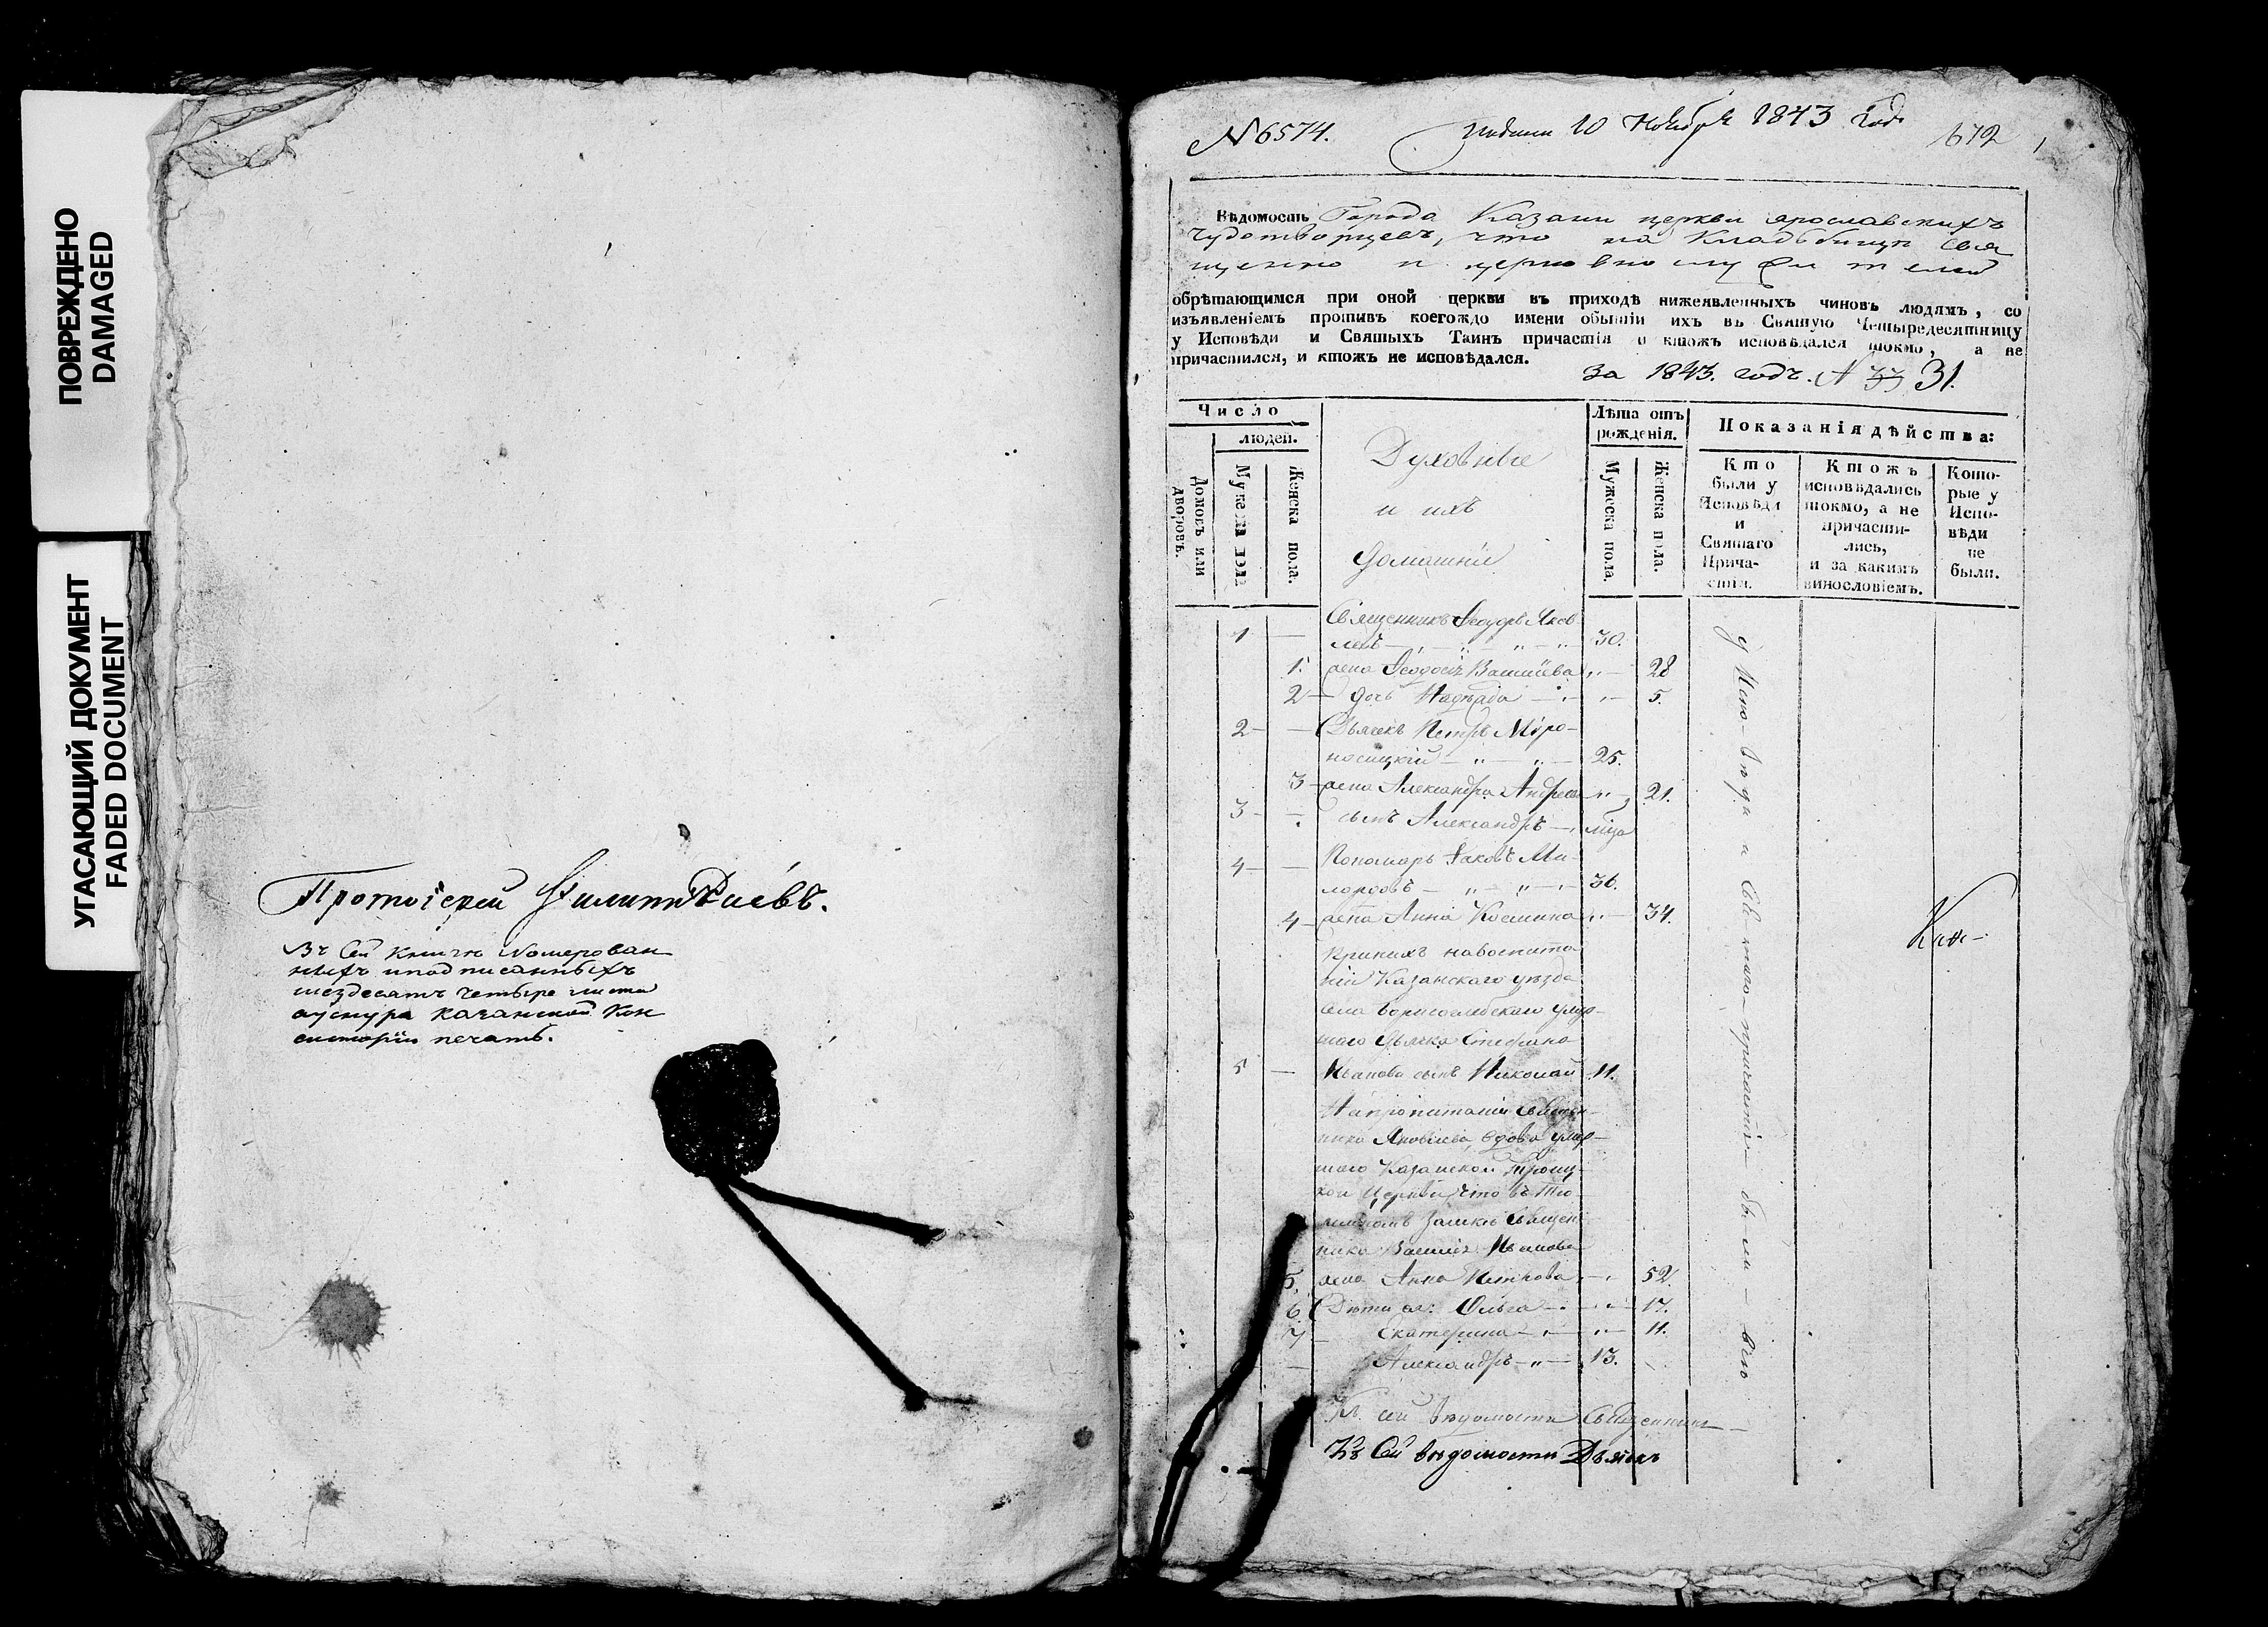 ПОВРЕЖДЕНО
DAMAGED
УГАСАЮЩИЙ ДОКУМЕНТ
FADED DOCUMENT
Протоіерей Филиппъ
Въ сей книгѣ номерован
ныхъ и подписанныхъ
шездесятъ четыре листа
Казанской Кон
систоріи печать.
№ 6574.
10 Ноября 1843 Года
672
Вѣдомость Города Казани церкви ярославскихъ
чудотворцевъ, что на Кладьбищѣ свя
щенно и церковнослужителей
обрѣтающимся при оной церкви въ приходѣ нижеявленныхъ чиновъ людямъ, со
изъявленіемъ противъ коегождо имени бытіи ихъ въ Святую Четыредесятницу
у Исповѣди и Святыхъ Таинъ причастія и ктожъ исповѣдался токмо, а не
причастился, и ктожъ не исповѣдался.
за 1843. годъ. № 31.
Число
людей.
Домовъ или дворовъ.
Мужеска пола
Женска пола.
Духовные
и ихъ
домашніи
Лѣта отъ
рожденія.
Мужеска пола.
Женска пола.
Показанія дѣйства:
Кто
были у
Исповѣди
и
Святаго
Прича-
стія.
Ктожъ
исповѣдались
токмо, а не
причасти-
лись,
и за какимъ
винословіемъ.
Кото-
рые у
Испо-
вѣди
не
были.
1 — Священникъ Ѳеодоръ Яков
левъ 30.
1. жена Ѳеодосія Васильева 28
2 — дочь Надежда 5.
2 — Дьячекъ Петръ Мѵро-
носицкій 25.
3 — жена Александра Андреева 21.
3 — сынъ Александръ
4 — Пономарь Іаковъ Ми-
36.
4 — жена Анна Косьмина 34.
При нихъ на воспита
ніи Казанскаго уѣзда
села Борисоглебскаго умер-
шаго Дьячка Стефана
5 — Иванова сынъ Николай 11.
На пропитаніи священ-
ника Яковлева вдова умер-
шаго Казанской Троиц-
кой Церкви что въ
замкѣ Священ
ника Василія Иванова
5. жена Анна Петрова 52.
6. Дѣти ея: Ольга 17.
7 — Екатерина 11.
— Александръ 13.
у Исповѣди и Св. таго причастія были всѣ
Къ сей вѣдомости Священникъ
Къ Сей вѣдомости Дьячекъ